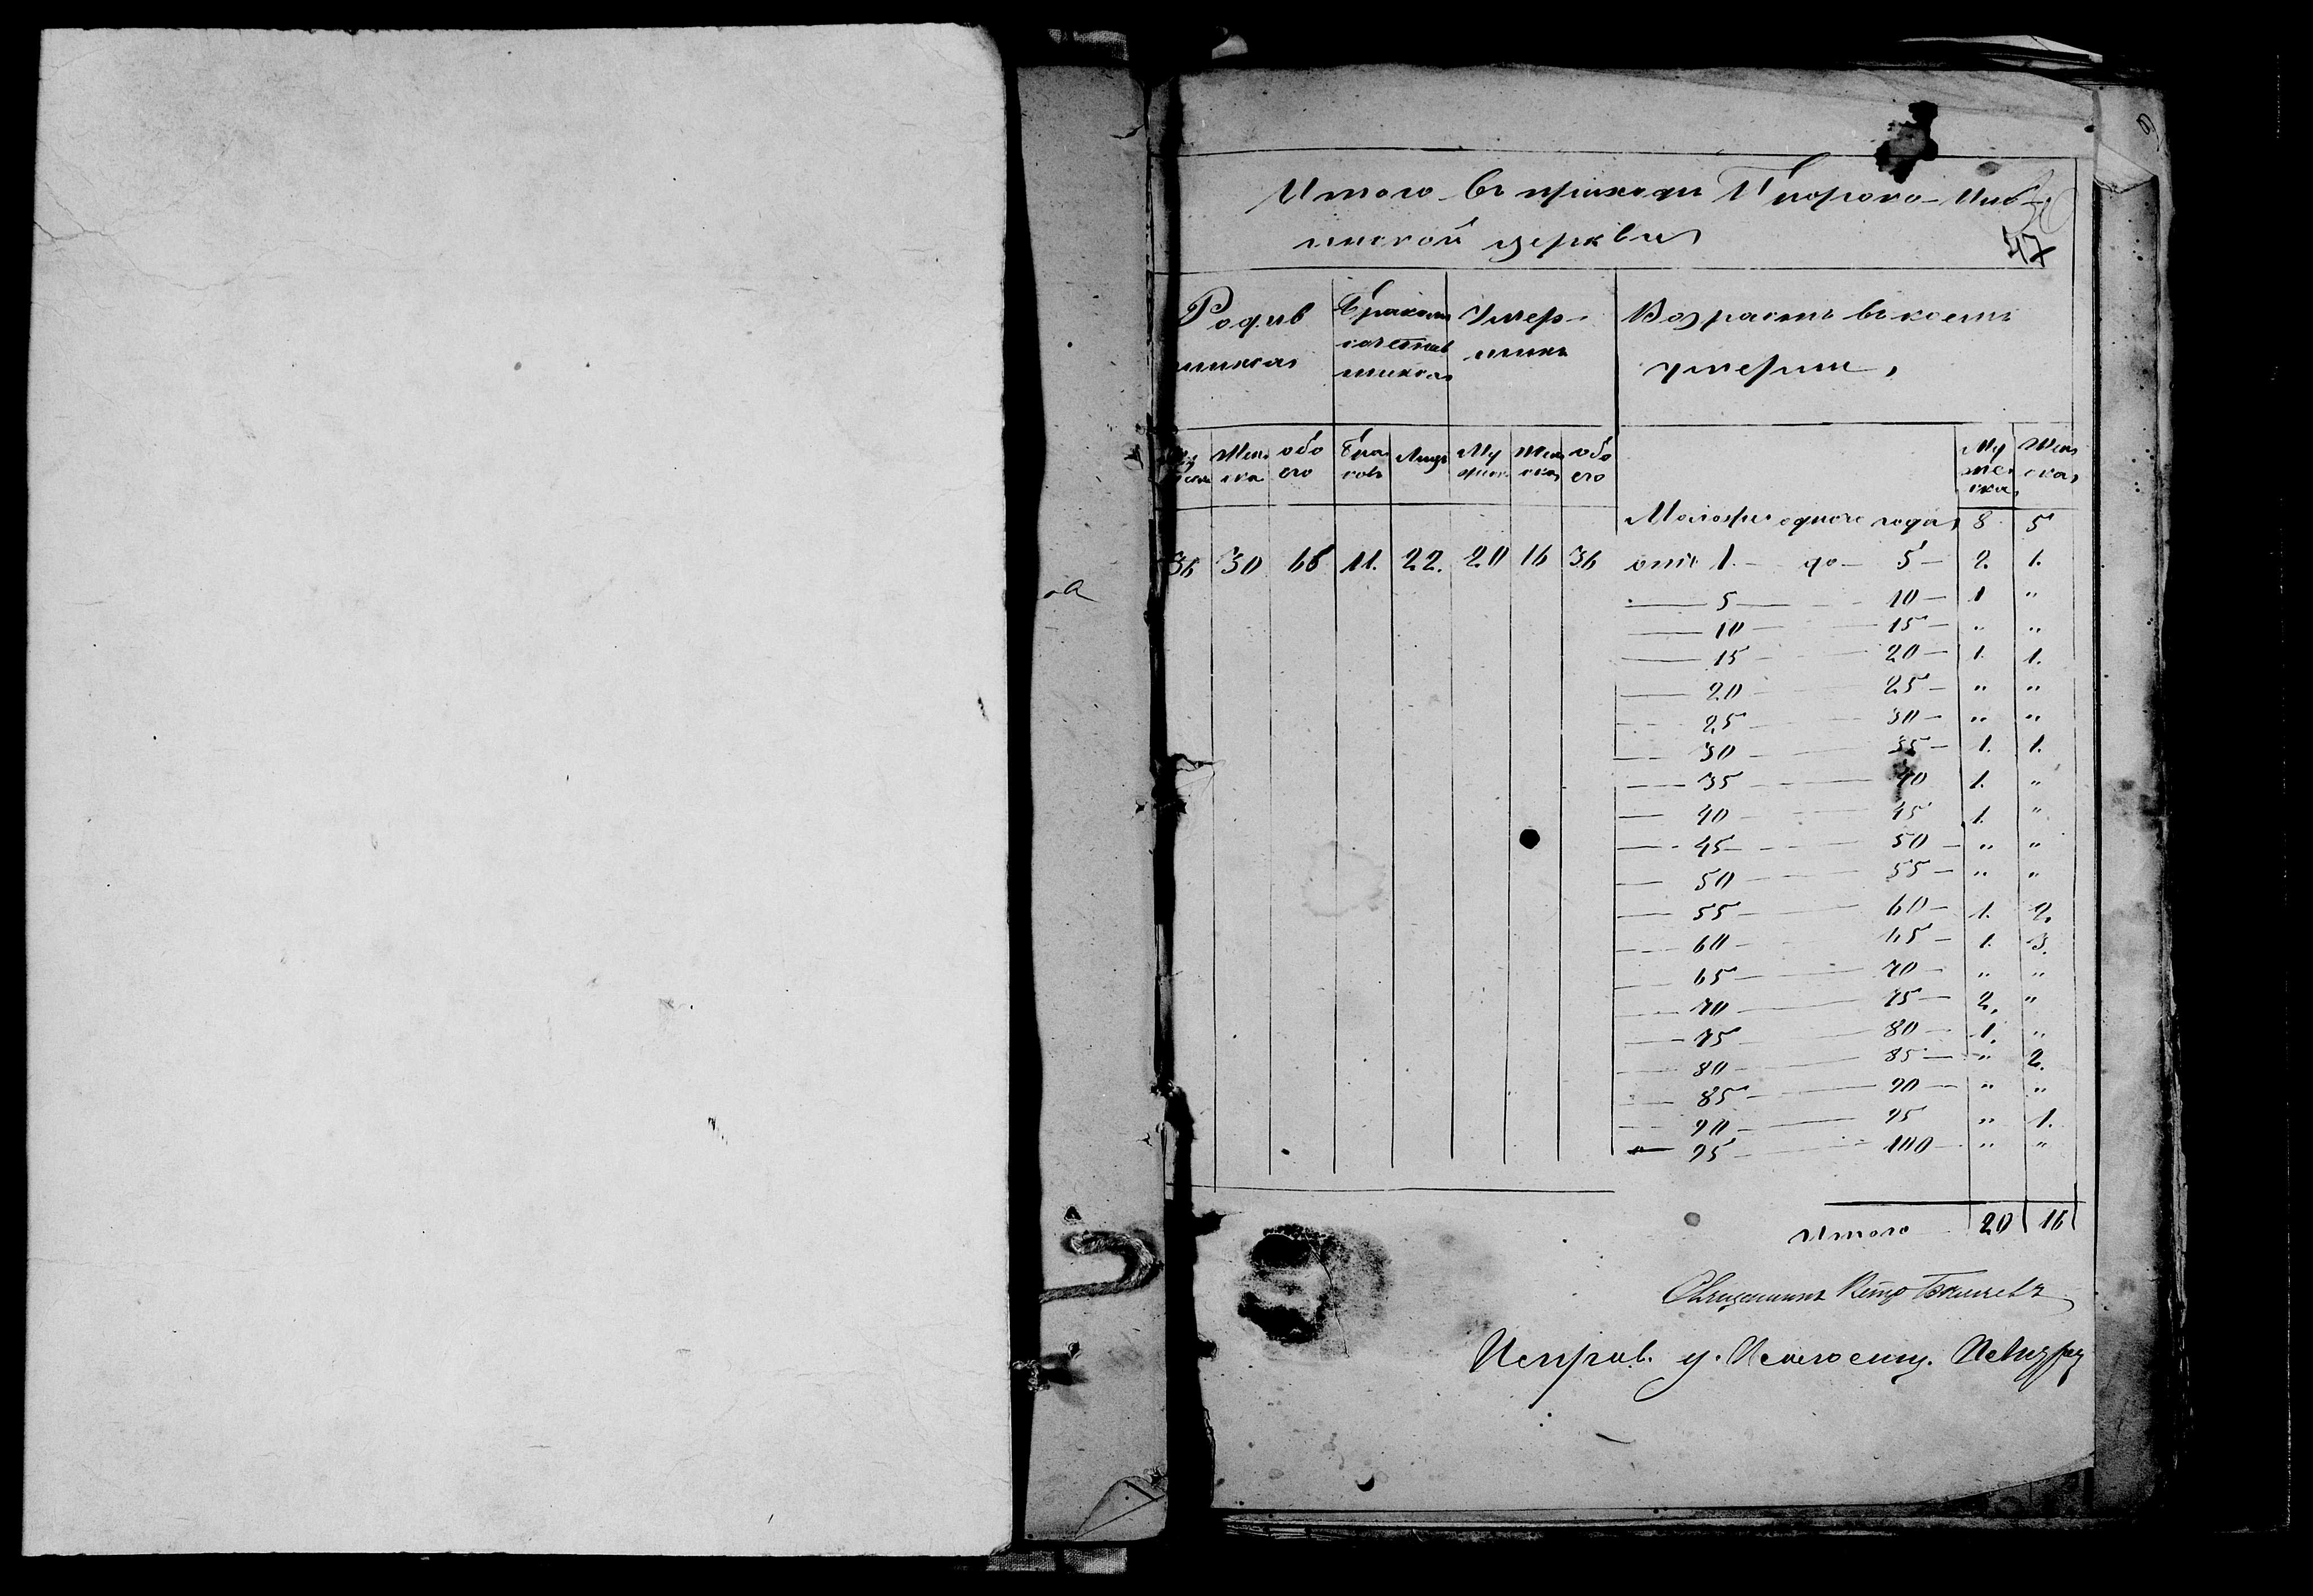 Итого въ приходѣ Пророко-Иль-
инской церкви
47
Родив
шихся
Бракомъ
сочетав
шихся
Умер-
шихъ
Возрастъ въ коемъ
умерли,
Муж
ска Жен
ска обо
его Бра
ковъ Лицъ Му
жск Жен
ска обо
его Му
же
ска, Жен
ска,
Моложе одного года 8 5
36 30 66 11. 22. 20 16 36 отъ 1. — до — 5 — 2. 1.
— 5 — 10 — 1 "
— 10 — 15 — " "
— 15 — 20 — 1. 1.
— 20 — 25 — " "
— 25 — 30 — " "
— 30 — 35 — 1. 1.
— 35 — 40 1. "
— 40 — 45 1. "
— 45 — 50 — " "
— 50 — 55 — " "
— 55 — 60 — 1. 2.
— 60 — 65 — 1. 3.
— 65 — 70 — " "
— 70 — 75 — 2. "
— 75 — 80 — 1. "
— 80 — 85 — " 2.
— 85 — 90 — " "
— 90 — 95 " 1.
— 95 — 100 — " "
Итого 20 16
Священникъ Петръ
Исправ. д.